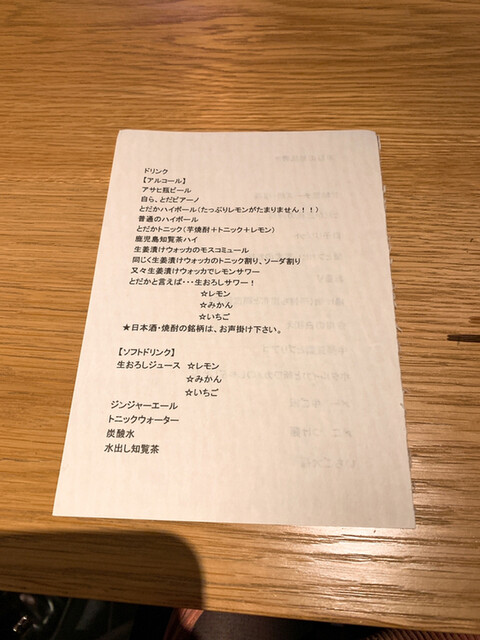 ドリンク
【アルコール】
アサヒ瓶ビール
自ら、とだピアーノ
とだかハイボール(たっぷりレモンがたまりません！！)
普通のハイボール
とだかトニック(芋焼酎＋トニック＋レモン)
鹿児島知覧茶ハイ
生姜漬けウォッカのモスコミュール
同じく生姜漬けウォッカのトニック割り、ソーダ割り
又々生姜漬けウォッカでレモンサワー
とだかと言えば・・・生おろしサワー！
☆レモン
☆みかん
☆いちご
★日本酒・焼酎の銘柄は、お声掛け下さい。
【ソフトドリンク】
生おろしジュース ☆レモン
☆みかん
☆いちご
ジンジャーエール
トニックウォーター
炭酸水
水出し知覧茶